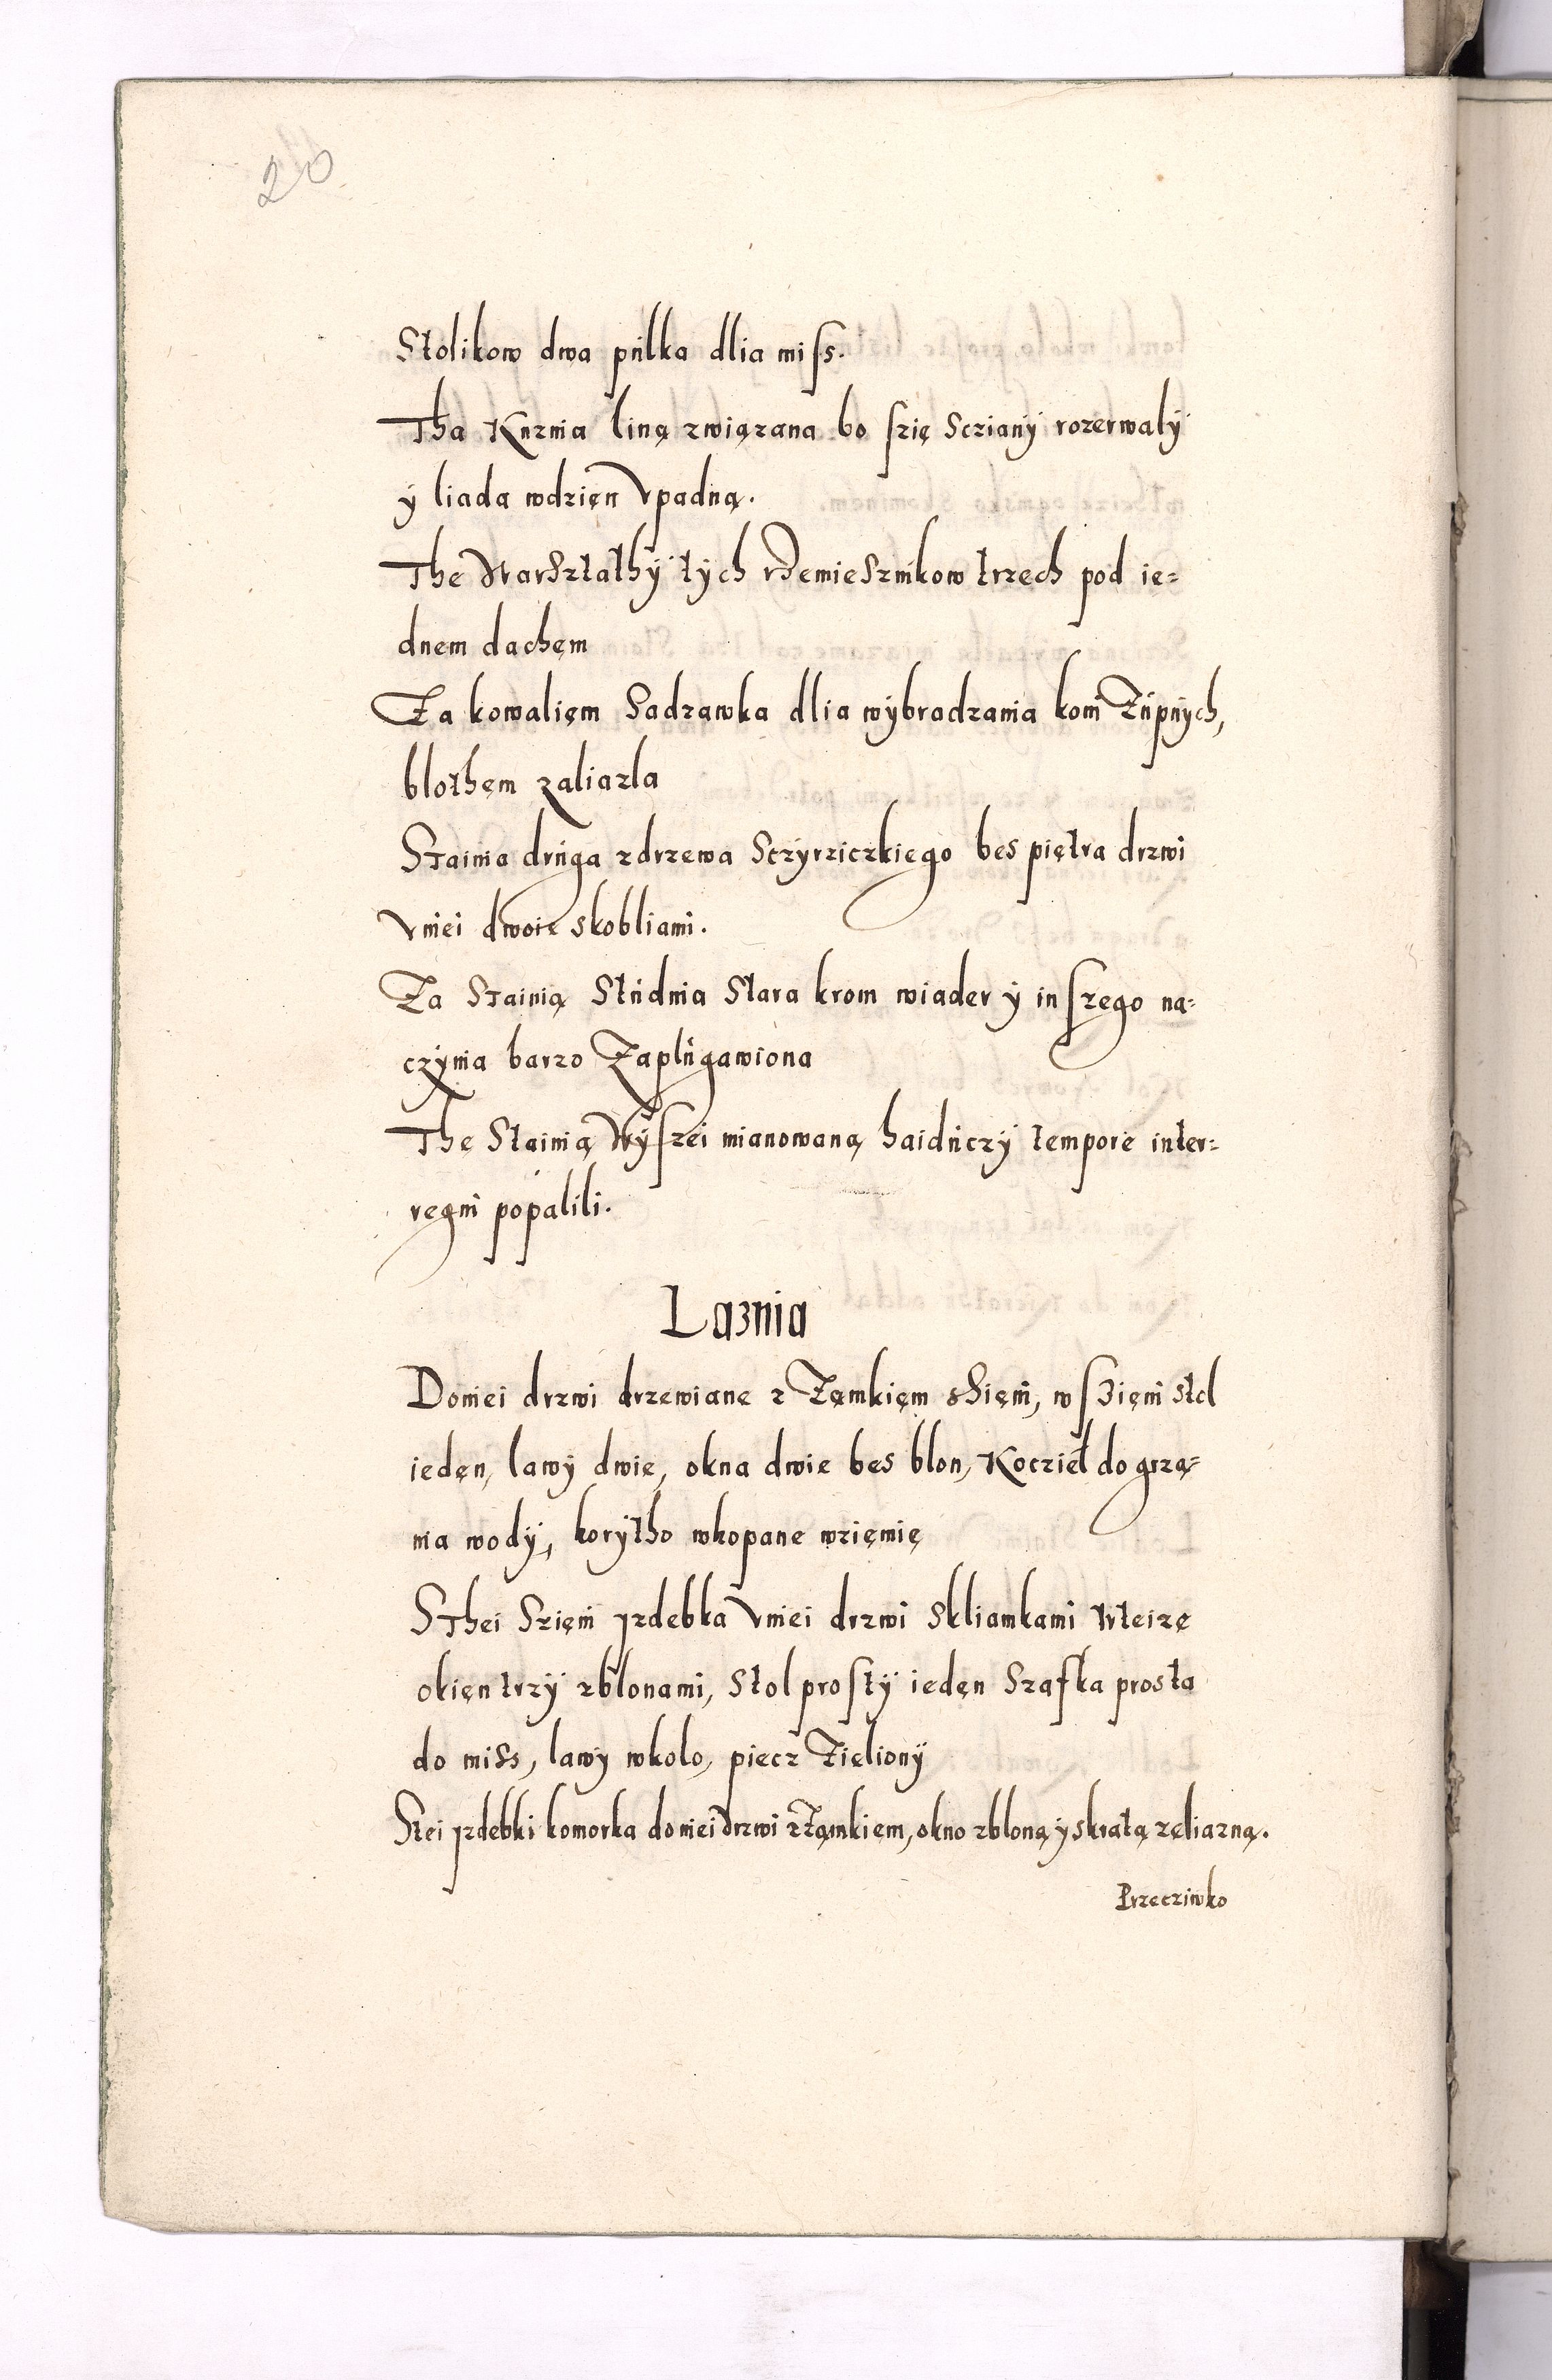 20
Stolikow dwa pulka dlia miss.
Tha Kuznia liną związana bo szię Scziany rozerwaly
y liada wdzięn Vpadną.
The Warsztathy tych rzemiesznikow trzech pod ie=
dnem dachęm
Za kowalięm Sadzawka dlia wybradzania koni Zupnych,
blothęm zaliazla
Stainia druga zdrzewa Sczyrziczkiego bes piętra drzwi
Vniei dwoie skobliami.
Za Stainią Studnia Stara krom wiader y inszego na=
czynia barzo Zaplugawiona
The Stainią Wyszei mianowaną haiduczy tempore inter=
regni popalili.
Laznia
Doniei drzwi drzewiane z Zamkięm sSięni, w sSięni stol
iedęn, lawy dwie, okna dwie bes blon, Kocziel do grza=
nia wody, korytho wkopane wzięmię
SThei Szięni yzdebka Vniei drzwi skliamkami Wteize
okięn trzy zblonami, Stol prosty iedęn Szafka prosta
do miss, lawy wkolo, piecz Zieliony
Stei yzdebki komorka do niei drzwi zZamkiem, okno zbloną y skratą zęliazną.
Przecziwko